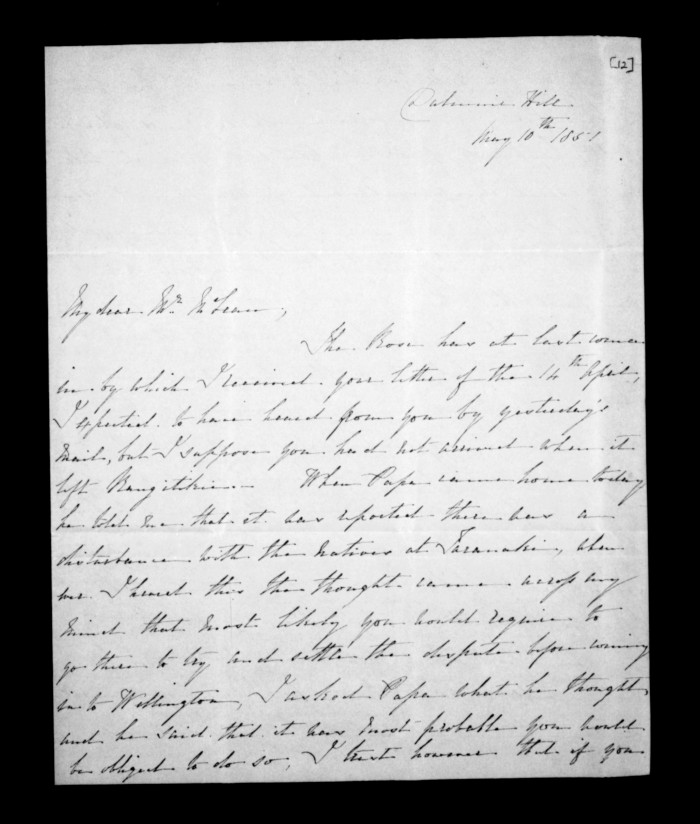 [12]
Dalmuir Hill
May 10th 1851
My dear Mr McLean,
The Rose has at last come
in by which I received your letter of the 14th April,
I expected to have heard from you by yesterday's
mail, but I suppose you had not arrived when it
left Rangitikie. When Papa came home today
he told me that it was reported there was a
disturbance with the Natives at Taranaki, when
ever I heard this the thought came across my
mind that most likely you would require to
go there to try and settle the dispute before coming
in to Wellington, I asked Papa what he thought
and he said that it was most probable you would
be obliged to do so, I trust however that if you